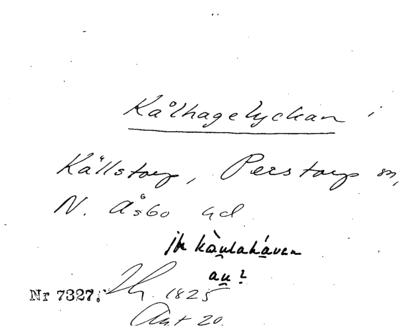 Kålhagelyckan i
Källstorp, Perstorp sn,
N. Åsbo hd
jfr kàulahάven
au?
Nr 7327. 1825
Akt 20.